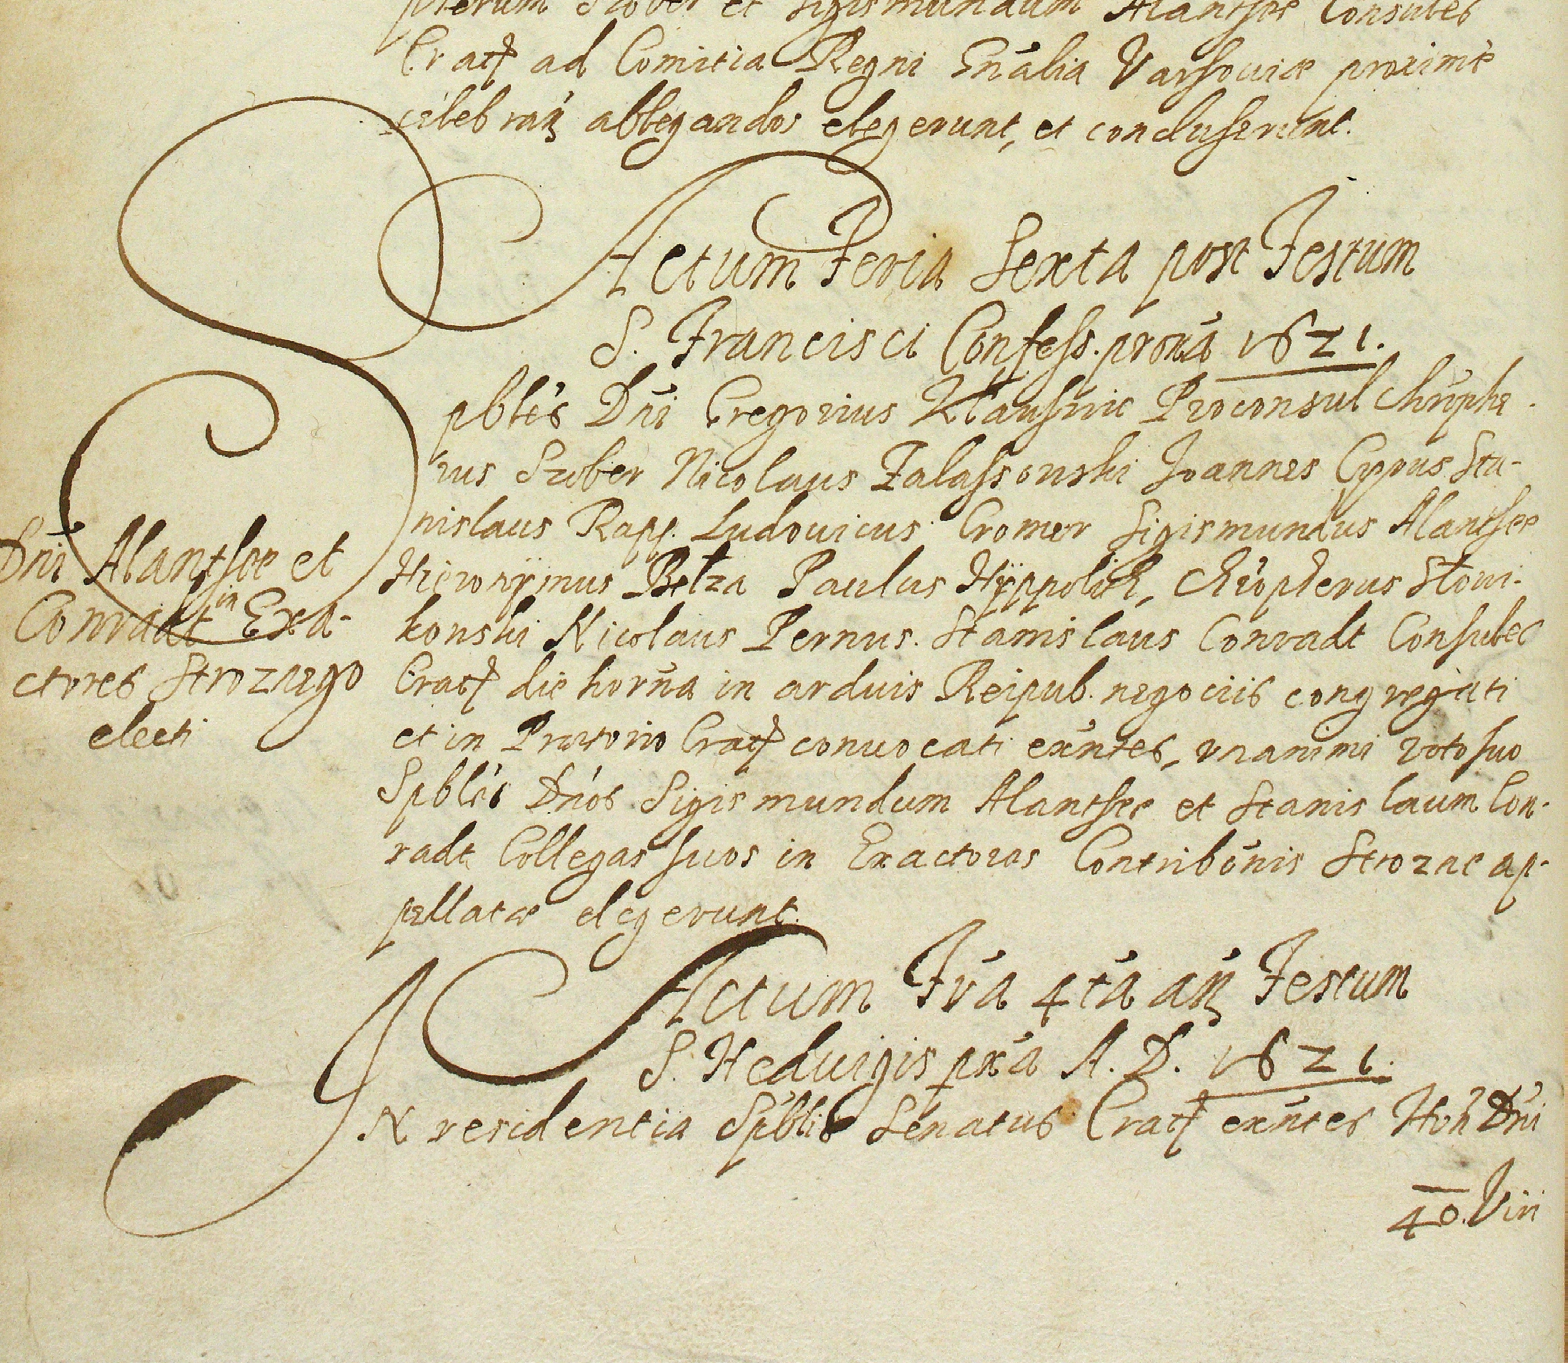 pherum Szober et Sigismundum Alantsee Consules
Crac ad Comitia Regni Gnalia Varsoviæ proximè
celebran ablegandos elegerunt, et concluserunt.
Actum Feria Sexta post Festum
S. Francisci Confess. proxa 1621.
Spbles Dni Gregorius Proconsul Chriophe
rus Szober Nicolaus Falassowski Joannes Cyrus Sta-
nislaus Rapp. Ludovicus Cromer Sigismundus Alantsee
Hieronÿmus Belza Paulus Hÿppolith, Chriopherus Słowi-
konski Nicolaus Pernus. Stanislaus Conradt Consules
Crac die horna in arduis Reipub. negociis congregati
et in Prætorio Crac convocati exnntes, unanimi voto suo
Spbles Dnos Sigismundum Alantsee et Stanislaum Con-
radt Collegas suos in Exactores Contribonis Strozne ap-
pellatæ elegerunt.
Dni Alantsee et
Conradt in Exa-
ctores Stroznego
electi
Actum Fra 4ta an Festum
S. Hedvigis pxa A. D. 1621.
IN residentia Spblis Senatus Crac exntes Hon Dni
40. Viri